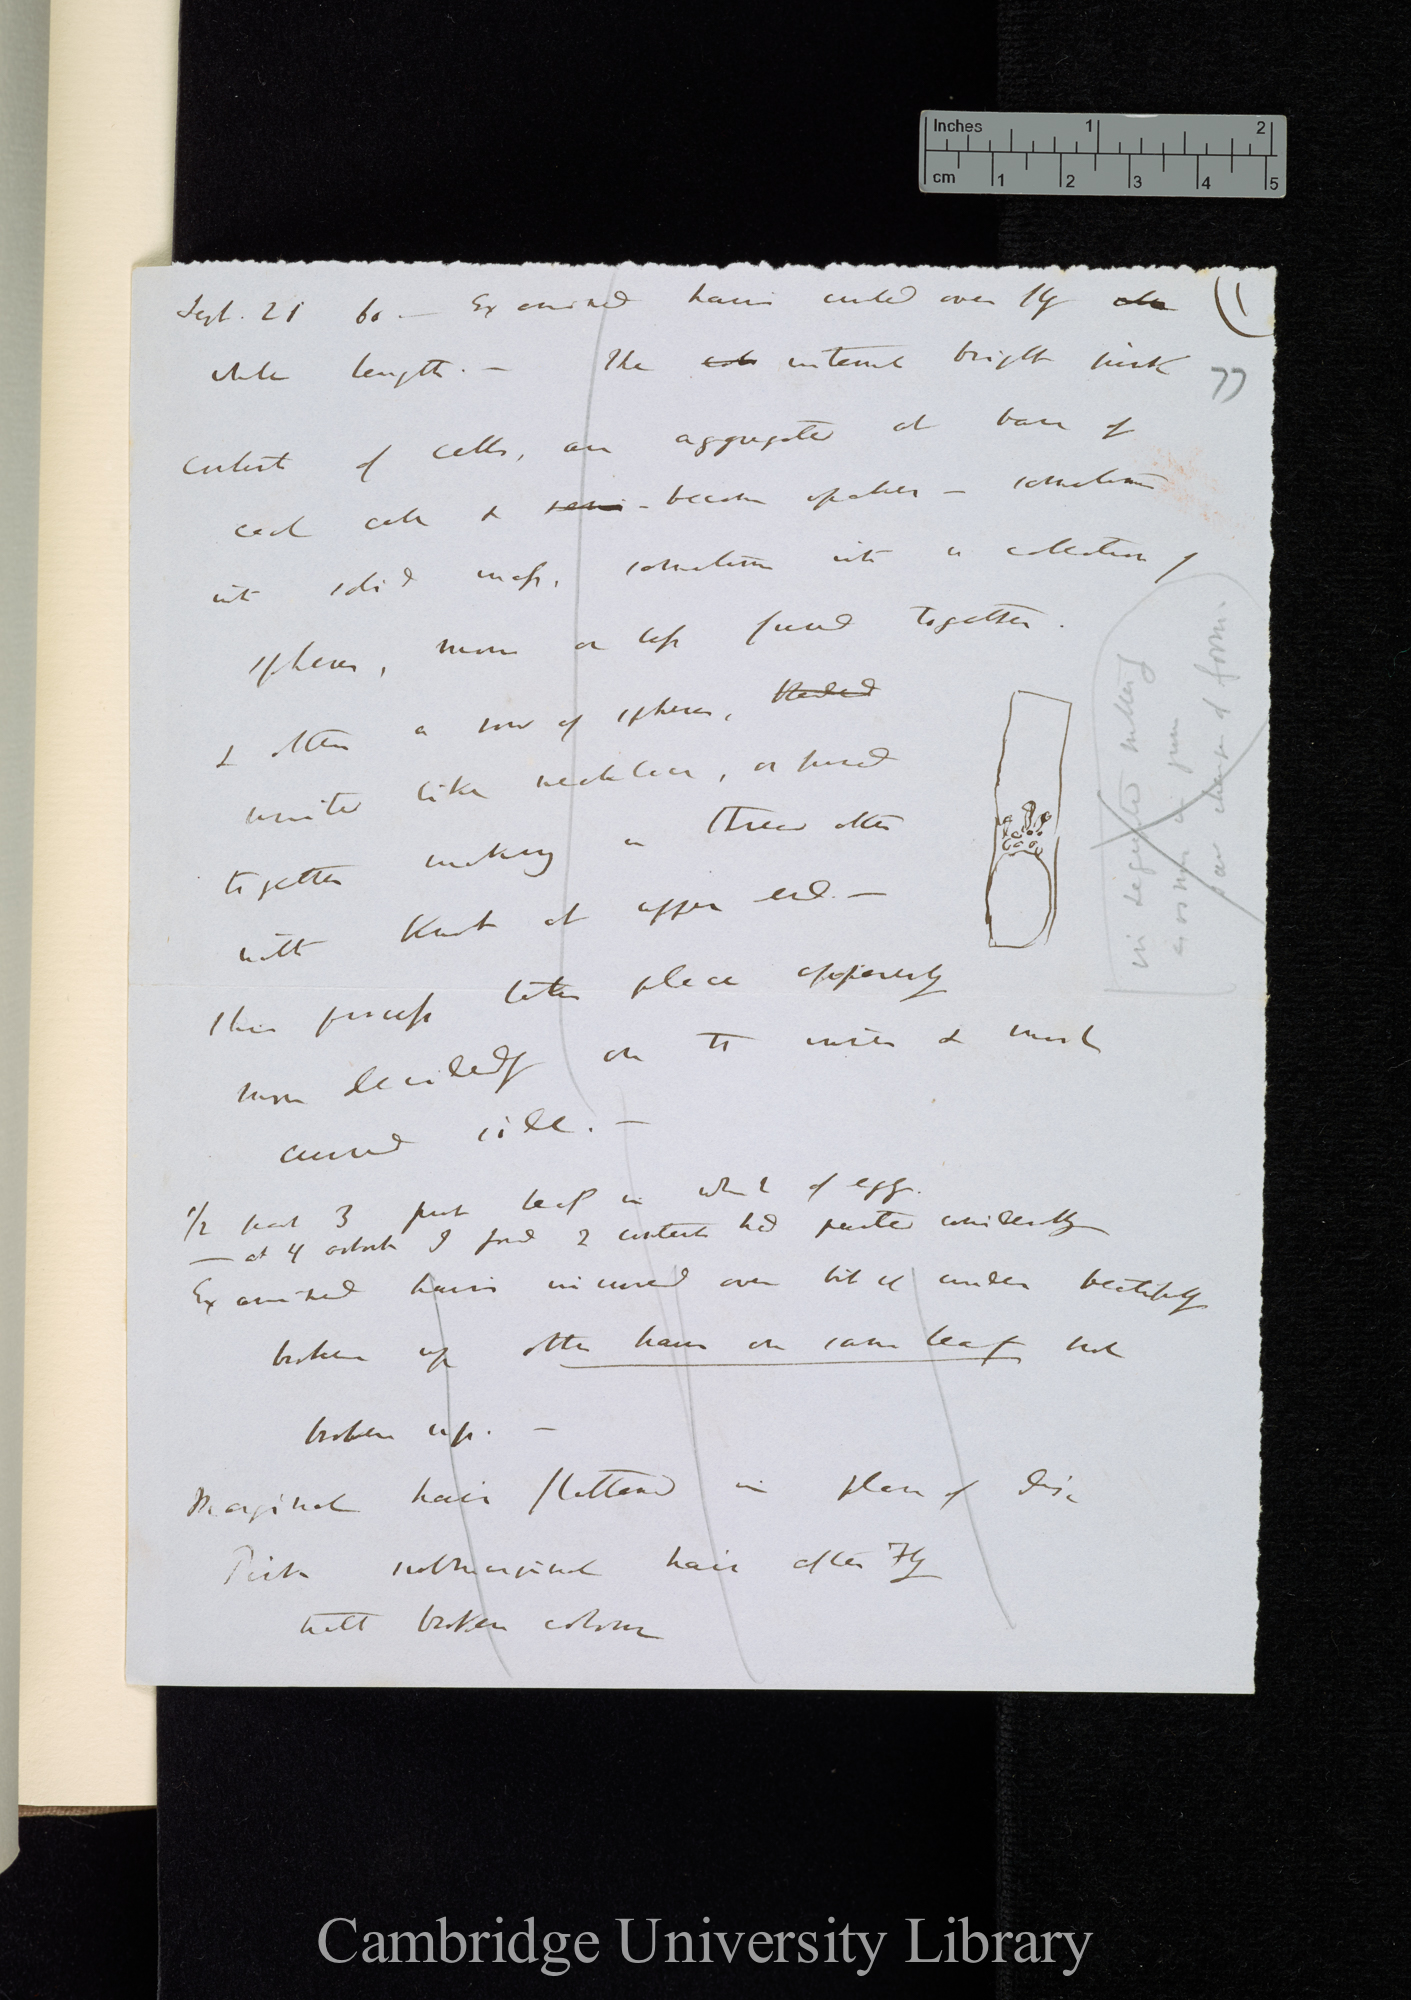 Inches 1 2
cm 1 2 3 4 5
(1
Sept. 21 60 — Examined hairs curled over fly
whole length. — The internal bright pink
77
content of cells, are aggregated at base of
each cell & semi- become opaker — sometimes
into solid mass, sometimes into a collection of
spheres, more or less fused together.
& often a row of spheres,
united like necklace, or fused
together making a thread often
with knob at upper end. —
This process takes place apparently
more decidedly on the inner & most
curved side. —
1/2 past 3 put leaf in white of egg.
— at 4 oclock I found 2 contents had parted considerably
Examined hairs incurved over bit of cinder beautifully
broken up other hairs on same leaf not
broken up. —
Marginal hair flattened in plane of disc
Pink submarginal hair after Fly
with broken colour
in segregated matter
saw change of form.
Cambridge University Library